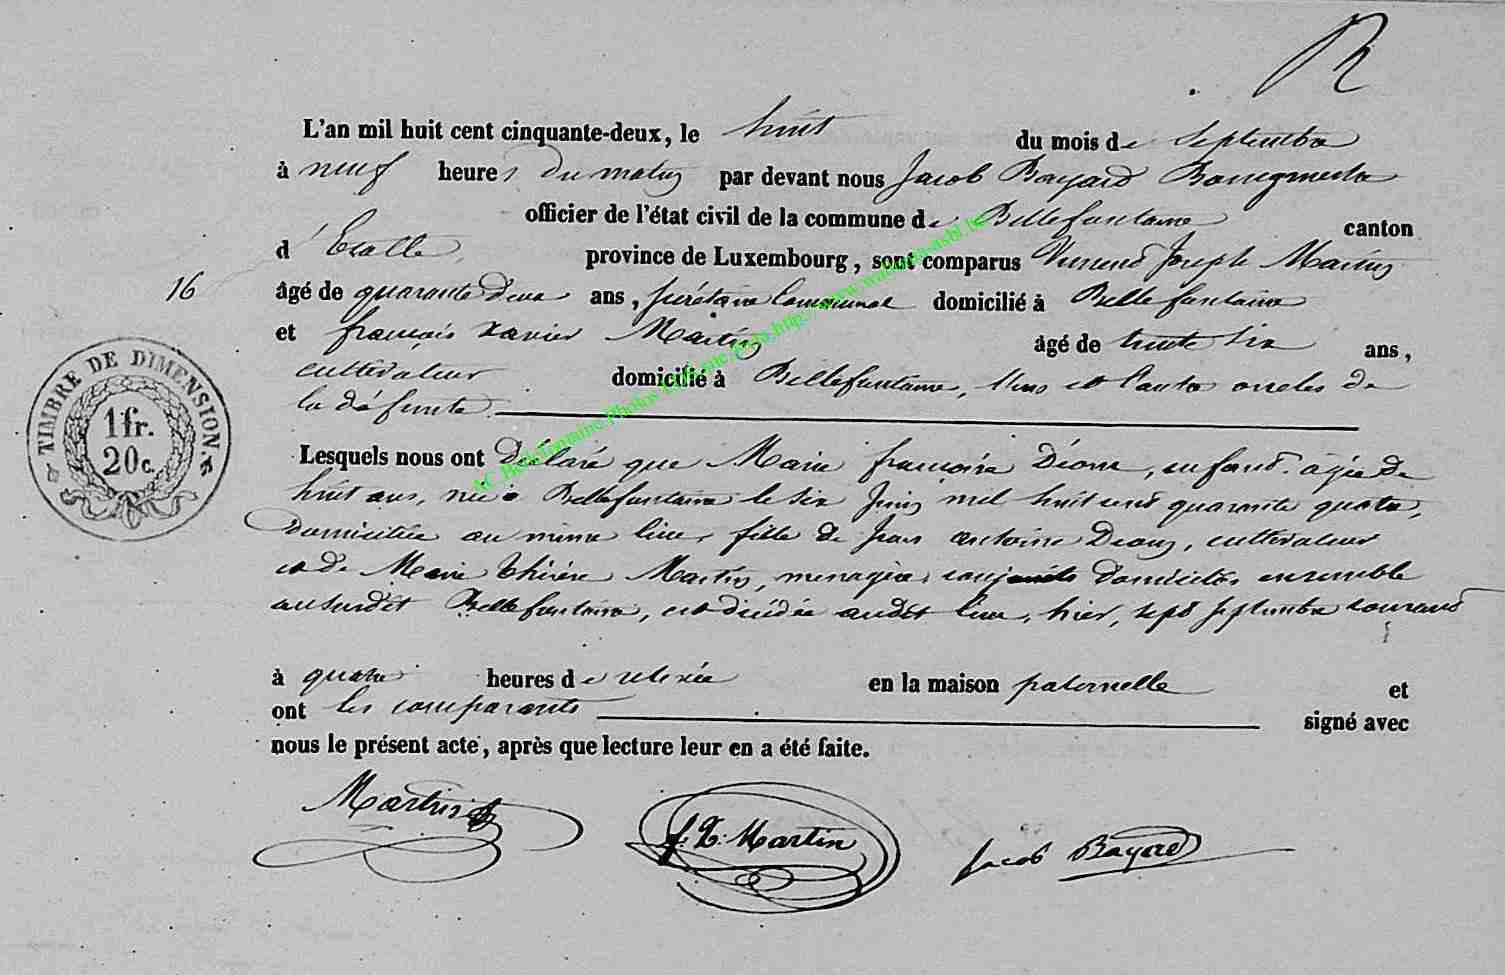 R
L'an mil huit cent cinquante-deux, le huit du mois de septembre
à neuf heures du matin par devant nous Jacob Bayard Bourgmestre
officier de l'état civil de la commune de Bellefontaine canton
d'Etalle, province de Luxembourg, sont comparus Vincent Joseph Martin
16 âgé de quarante deux ans, secrétaire communal domicilié à Bellefontaine
et françois xavier Martin âgé de trente six ans,
cultivateur domicilié à Bellefontaine, tous et l'autre oncles de
la défunte
Lesquels nous ont déclaré que Marie françoise Déom, enfant âgée de
huit ans, née à Bellefontaine le six Juin mil huit cent quarante quatre,
domiciliée au même lieu, fille de Jean antoine Deom, cultivateur
et de Marie thérèse Martin, menagère, conjoints domiciliés ensemble
au susdit Bellefontaine, est décédée audit lieu, hier, sept septembre courant
à quatre heures de relevée en la maison paternelle et
ont les comparants signé avec
nous le présent acte, après que lecture leur en a été faite.
Martin
f. X. Martin
Jacob Bayard
TIMBRE DE DIMENSION.
1 fr.
20 c.
AC Bellefontaine Photos http://www.wallonia-asbl.be